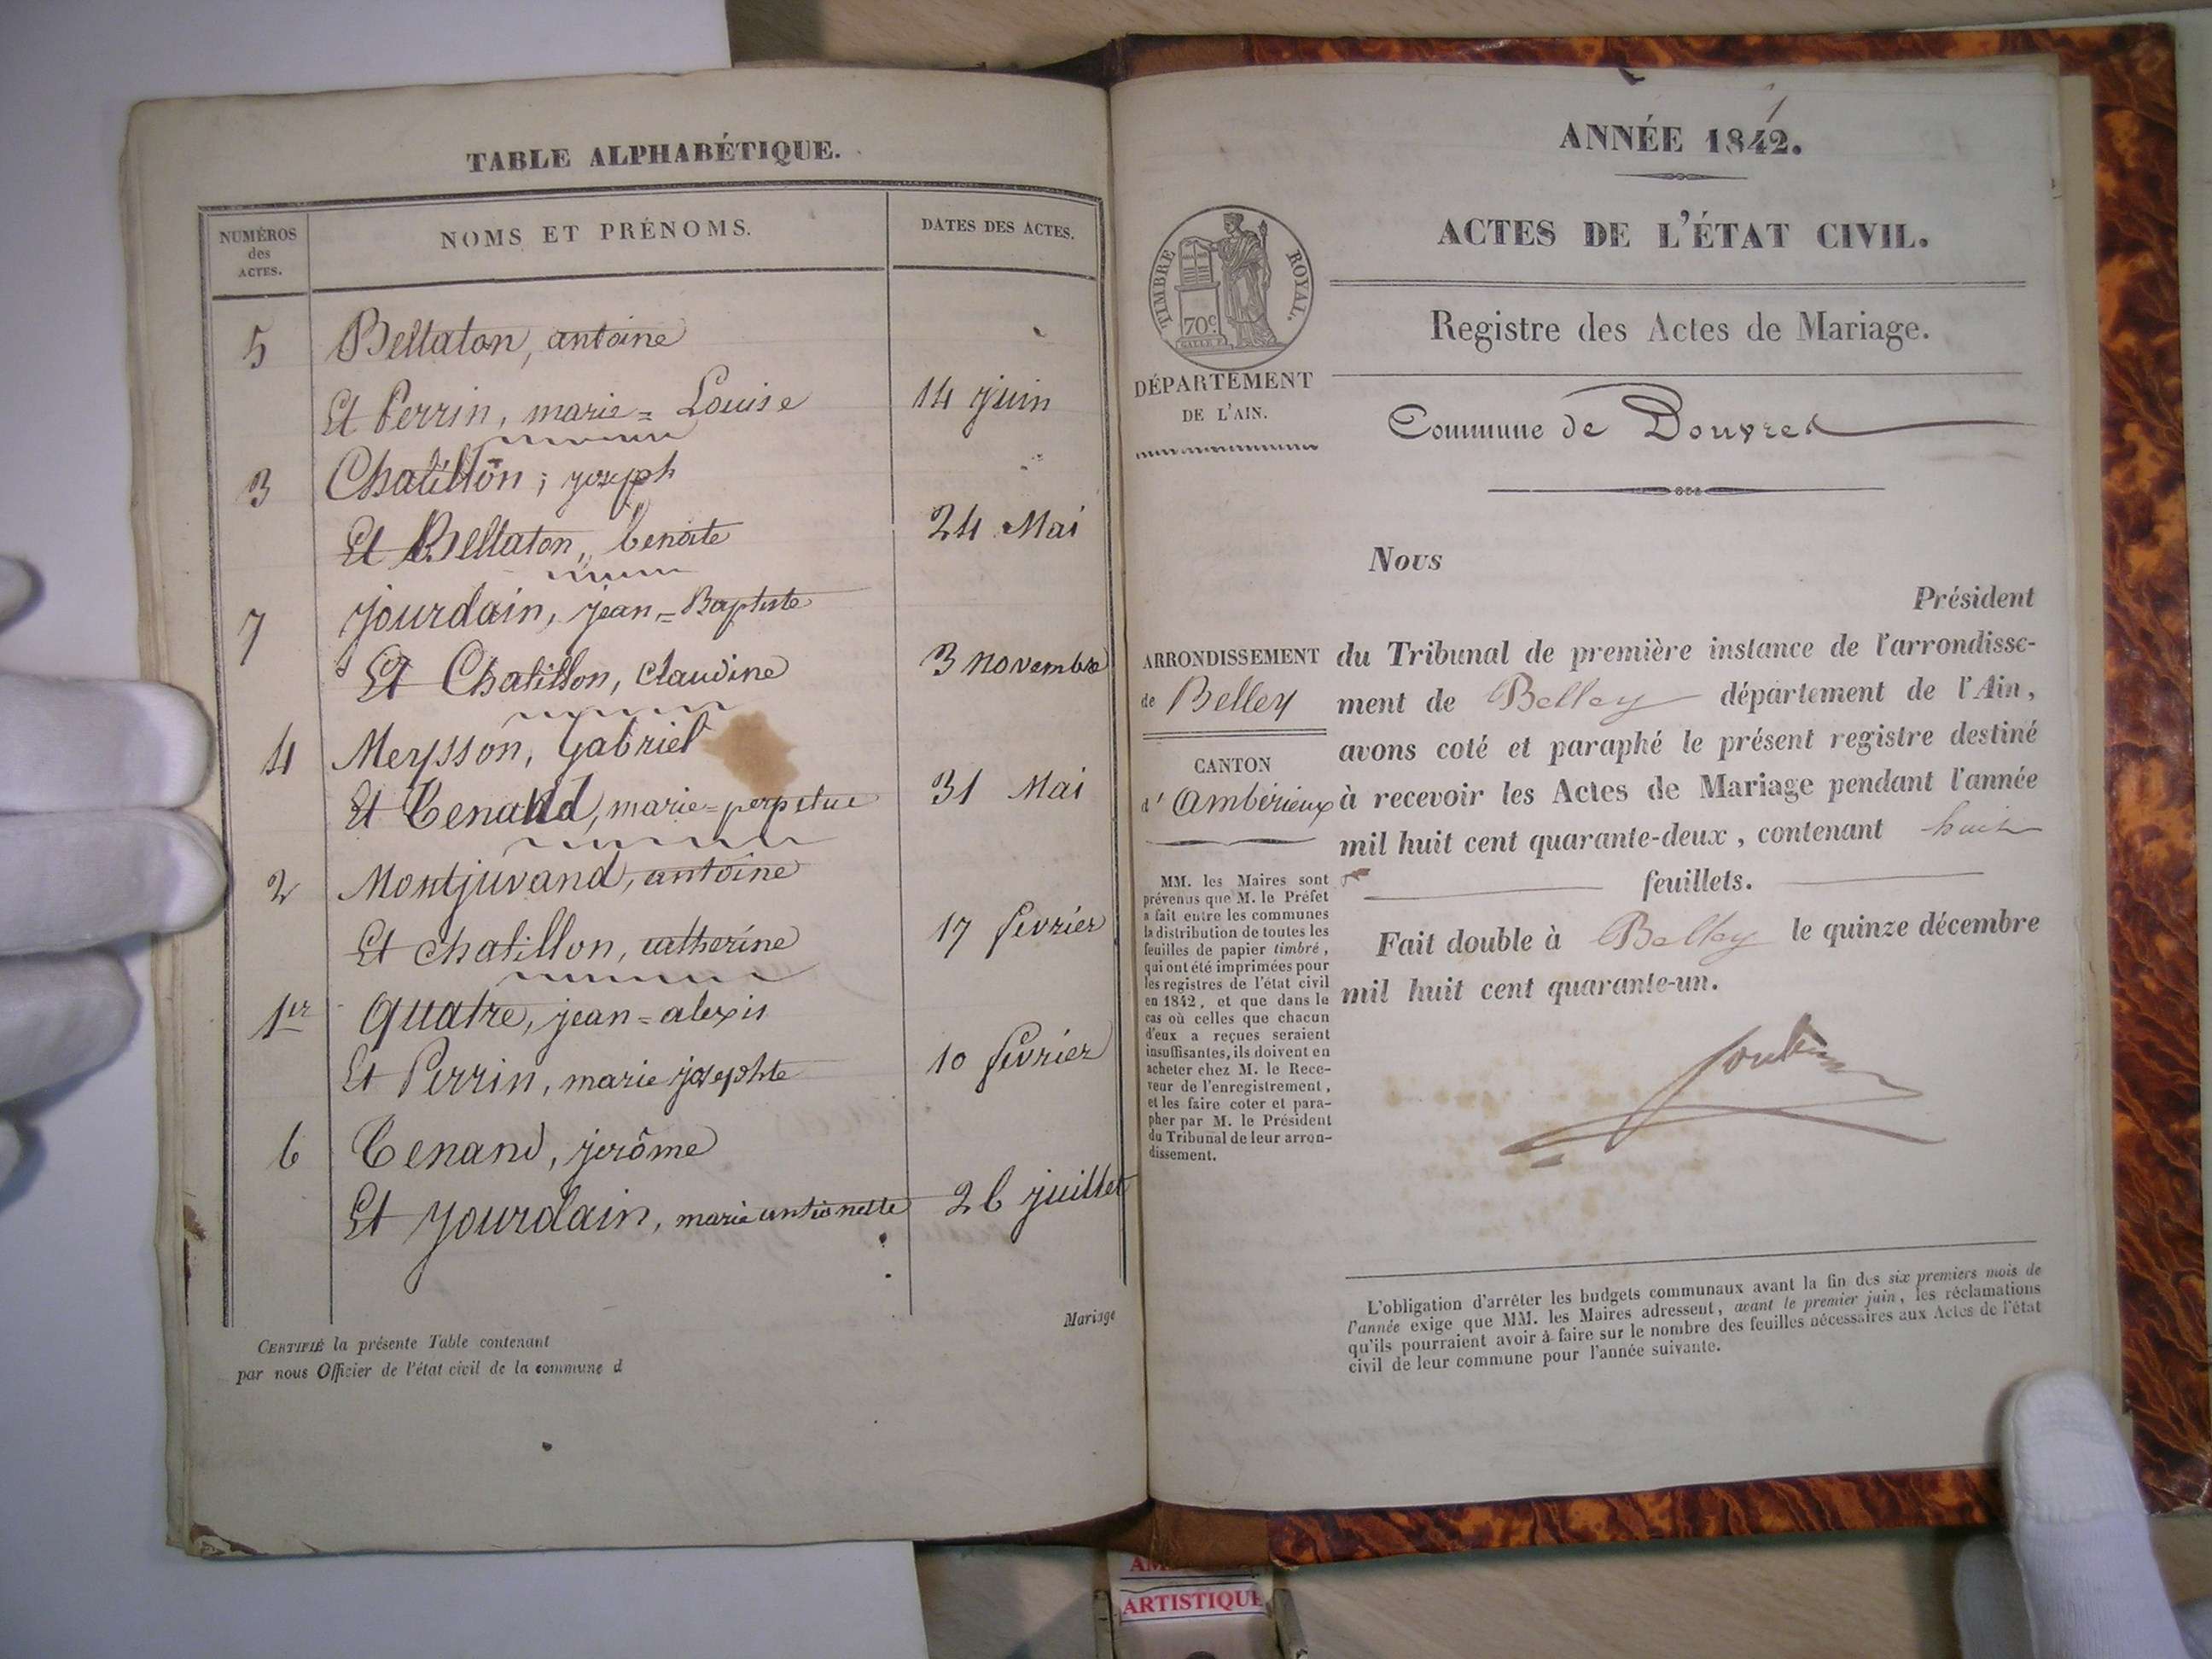 TABLE ALPHABÉTIQUE.
NUMÉROS
des
ACTES.
NOMS ET PRÉNOMS.
DATES DES ACTES.
5 Bellaton, antoine
Et Perrin, marie = Louise 14 juin
3 Chatillon ; joseph
Et Bellaton, benoite 24 Mai
7 jourdain, jean = Baptiste
Et Chatillon, Claudine 3 novembre
4 Meysson, Gabriel
Et Tenand, marie = perpetue 31 Mai
2 Montjuvand, antoine
Et chatillon, catherine 17 fevrier
1er quatre, jean = alexis
Et Perrin, marie josephte 10 fevrier
6 Tenand, jerôme
Et jourdain, marie antionette 26 juillet
Mariage
CERTIFIÉ la présente Table contenant
par nous Officier de l'état civil de la commune d
1
ANNÉE 1842.
ACTES DE L'ÉTAT CIVIL.
Registre des Actes de Mariage.
TIMBRE ROYAL.
70c.
DÉPARTEMENT
DE L'AIN.
Commune de Douvres
Nous
Président
ARRONDISSEMENT
de Belley
CANTON
d' Ambérieux
du Tribunal de première instance de l'arrondisse-
ment de Belley département de l'Ain,
avons coté et paraphé le présent registre destiné
à recevoir les Actes de Mariage pendant l'année
mil huit cent quarante-deux, contenant huit
feuillets.
Fait double à Belley le quinze décembre
mil huit cent quarante-un.
MM. les Maires sont
prévenus que M. le Préfet
a fait entre les communes
la distribution de toutes les
feuilles de papier timbré,
qui ont été imprimées pour
les registres de l'état civil
en 1842, et que dans le
cas où celles que chacun
d'eux a reçues seraient
insuffisantes, ils doivent en
acheter chez M. le Rece-
veur de l'enregistrement,
et les faire coter et para-
pher par M. le Président
du Tribunal de leur arron-
dissement.
L'obligation d'arrêter les budgets communaux avant la fin des six premiers mois de
l'année exige que MM. les Maires adressent, avant le premier juin, les réclamations
qu'ils pourraient avoir à faire sur le nombre des feuilles nécessaires aux Actes de l'état
civil de leur commune pour l'année suivante.
ARTISTIQUE